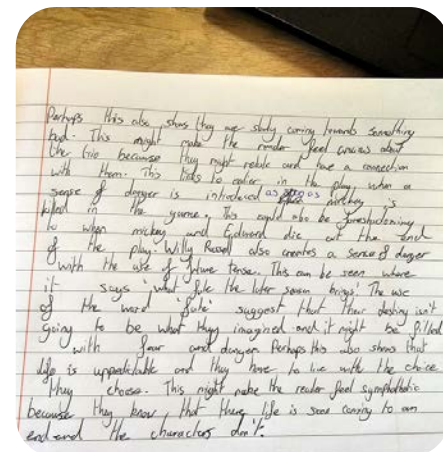 Perhaps this also shows they are slowly coming towards something
bad. This might make the reader feel anxious about
the trio because they might relate and have a connection
with them. This links to earlier in the play when a
sense of danger is introduced as soon as mickey is
killed in the game. This could also be foreshadowing
to when mickey and Edward die at the end
of the play. Willy Russell also creates a sense of danger
with the use of future tense. This can be seen where
it says 'what fate the later season brings'. The use
of the word 'fate' suggest that their destiny isn't
going to be what they imagined and it might be filled
with fear and danger. Perhaps this also shows that
life is unpredictable and they have to live with the choice
they choose. This might make the reader feel
because they know that there life is soon coming to an
end and the characters don't.